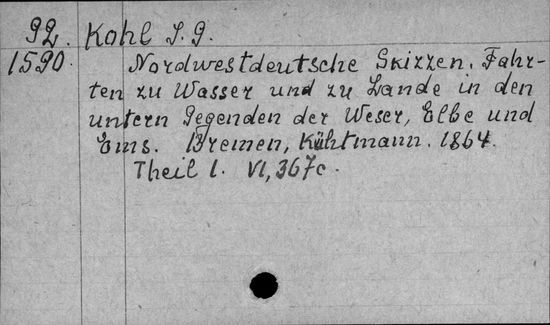 92. Kohl J. G.
1590. Nordwestdeutsche Skizzen. Fahr-
ten zu Wasser und zu Lande in den
untern Gegenden der Weser, Elbe und
Ems. Bremen, Kühtmann. 1864.
Theil 1. VI, 367c.